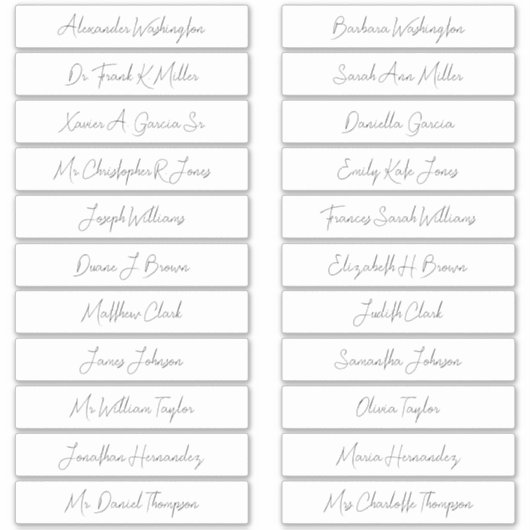 Alexander Washington
Barbara Washington
Dr Frank K Miller
Sarah Ann Miller
Xavier A. Garcia Sr
Daniella Garcia
Mr Christopher R Jones
Emily Kate Jones
Joseph Williams
Frances Sarah Williams
Duane J Brown
Elizabeth H Brown
Matthew Clark
Judith Clark
James Johnson
Samantha Johnson
Mr William Taylor
Olivia Taylor
Jonathan Hernandez
Maria Hernandez
Mr Daniel Thompson
Mrs Charlotte Thompson